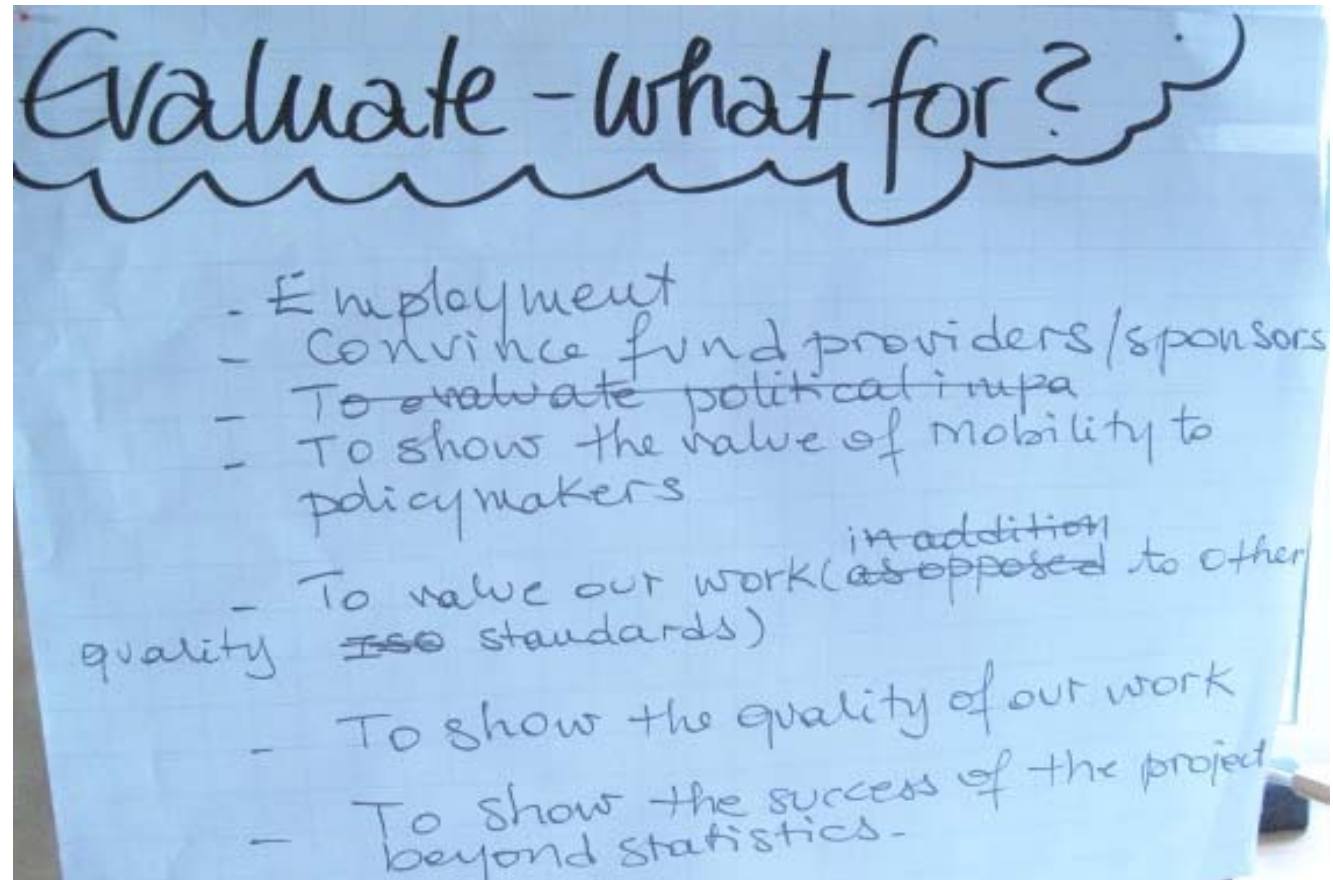 Evaluate - what for?
- Employment
- Convince fund providers/sponsors
- To evaluate political impa
- To show the value of mobility to
policymakers
in addition
- To value our work (as opposed to other
quality ISO standards)
- To show the quality of our work
- To show the success of the project
beyond statistics.